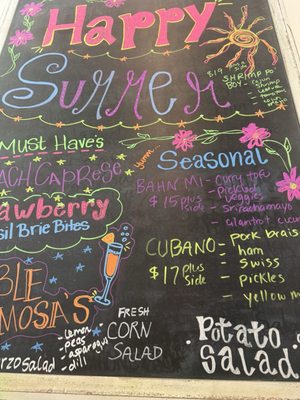 Happy
Summer
$19
SHRIMP PO
BOY - cajun
shrimp
MUST Have's
ACH CAPRESE
rawberry
sil Brie Bites
BLE
MOSA'S
- lemon
- peas
- asparagus
- dill
rzo salad
FRESH
CORN
SALAD
Yumm
Seasonal
BAHN MI - curry tofu
$15 plus
side
- Pickled
veggies
- srirachamayo
- cilantro+ cucu
CUBANO - Pork brais
$17 plus
side
- ham
- Swiss
- pickles
- yellow m
Potato
SALAD